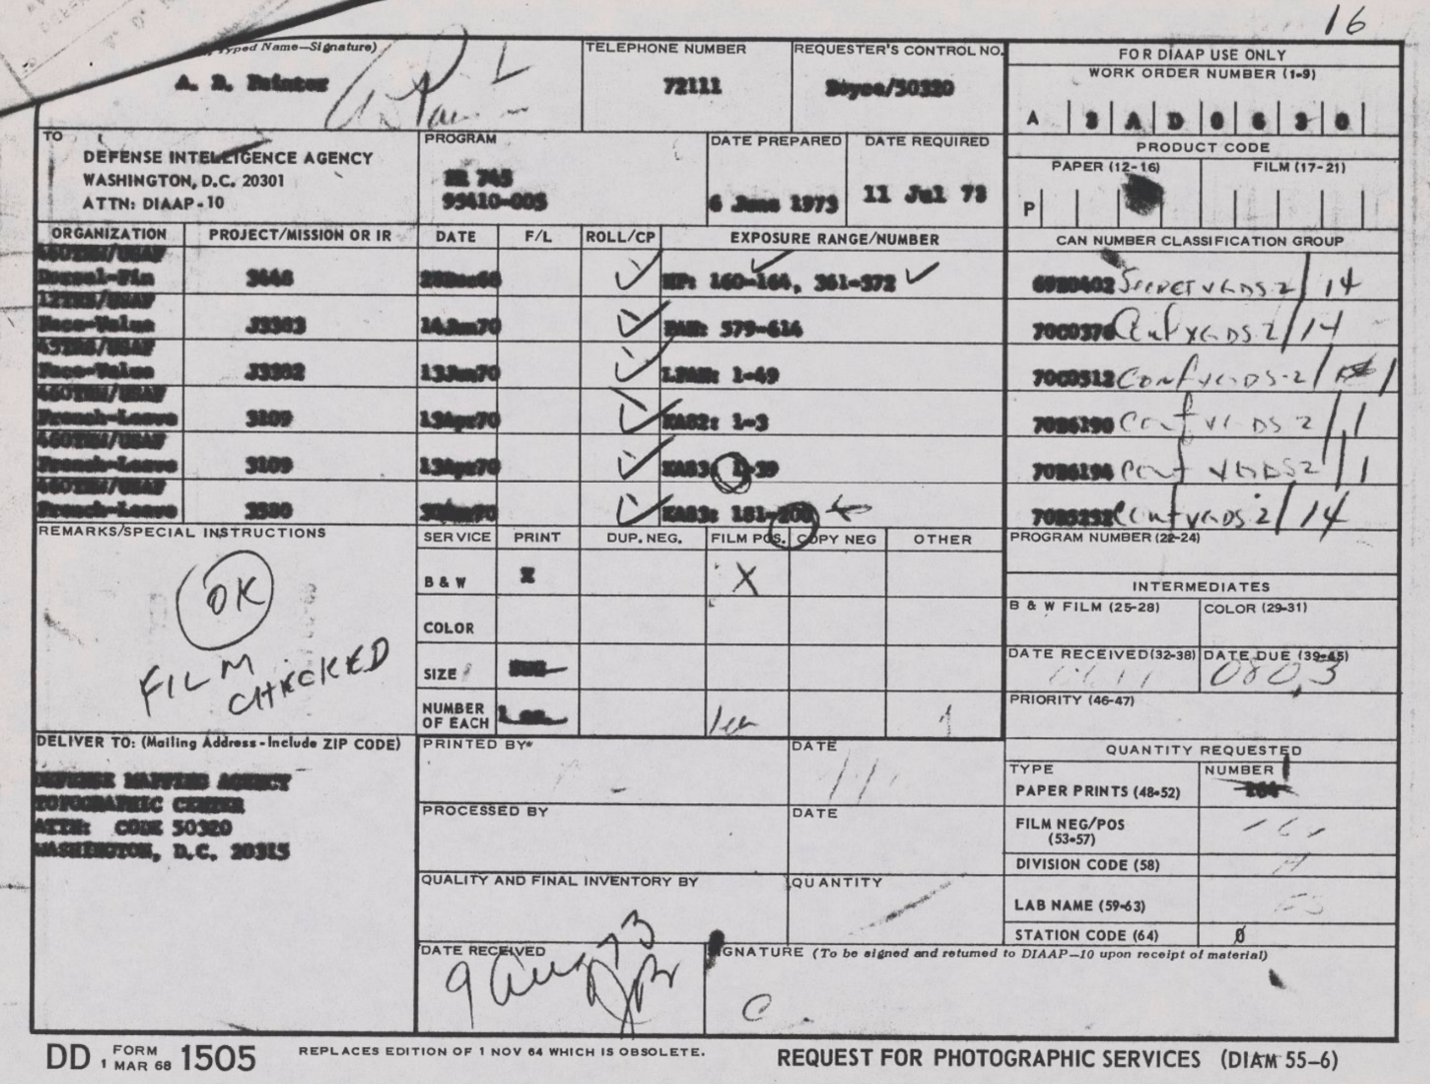 16
Typed Name—Signature)
TELEPHONE NUMBER
REQUESTER'S CONTROL NO.
FOR DIAAP USE ONLY
A. D. Painter
72111
Boyce/50320
WORK ORDER NUMBER (1-9)
A 3 A D 0 6 3 0
TO
DEFENSE INTELLIGENCE AGENCY
WASHINGTON, D.C. 20301
ATTN: DIAAP-10
PROGRAM
95410-005
DATE PREPARED
6 June 1973
DATE REQUIRED
11 Jul 73
PRODUCT CODE
PAPER (12-16)
FILM (17-21)
P
ORGANIZATION
PROJECT/MISSION OR IR
DATE
F/L
ROLL/CP
EXPOSURE RANGE/NUMBER
CAN NUMBER CLASSIFICATION GROUP
460TRW/USAF
Dorsal-Fin 3446 HP: 160-164, 361-372 Secret XGDS-2/14
12TRS/USAF
Face-Value J3303 14Jun70 PAN: 579-614 70C0376 Conf XGDS-2/14
45TRS/USAF
Face-Value J3302 13Jun70 LPAN: 1-49 70C0512 Conf XGDS-2/ 1
460TRW/USAF
French-Leave 3109 13Apr70 KA82: 1-3 70B6190 Conf XGDS 2/1
460TRW/USAF
French-Leave 3109 13Apr70 KA83: 1-39 70B6194 Conf XGDS2/1
460TRW/USAF
French-Leave 3580 KA83: 181-200 Conf XGDS 2/14
REMARKS/SPECIAL INSTRUCTIONS
OK
FILM
CHECKED
SERVICE
PRINT
DUP. NEG.
FILM POS.
COPY NEG
OTHER
B & W X X
COLOR
SIZE
NUMBER
OF EACH 1 ea. 1ea 1
PROGRAM NUMBER (22-24)
INTERMEDIATES
B & W FILM (25-28)
COLOR (29-31)
DATE RECEIVED(32-38)
DATE DUE (39-45)
0803
PRIORITY (46-47)
DELIVER TO: (Mailing Address-Include ZIP CODE)
DEFENSE MAPPING AGENCY
TOPOGRAPHIC CENTER
ATTN: CODE 50320
WASHINGTON, D.C. 20315
PRINTED BY*
DATE
PROCESSED BY
DATE
QUALITY AND FINAL INVENTORY BY
QUANTITY
QUANTITY REQUESTED
TYPE
NUMBER
PAPER PRINTS (48-52)
FILM NEG/POS
(53-57)
DIVISION CODE (58)
LAB NAME (59-63)
STATION CODE (64) 0
DATE RECEIVED
9 Aug 73
SIGNATURE (To be signed and returned to DIAAP-10 upon receipt of material)
DD FORM 1 MAR 68 1505
REPLACES EDITION OF 1 NOV 64 WHICH IS OBSOLETE.
REQUEST FOR PHOTOGRAPHIC SERVICES (DIAM 55-6)